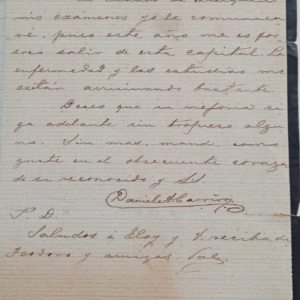 mis exámenes y le comunica-
ré, pues este año me es for-
zoso salir de esta capital. La
enfermedad y los estudios me
están arruinando bastante.
Deseo que su mejoría si-
ga adelante sin tropiezo algu-
no. Sin mas, mande como
guste en el obsecuente corazon
de su reconocido y S.S.
Daniel A. Carrión
P. D.
Saludos á Eloy y V. reciba de
Teodoro y amigos. Vale.